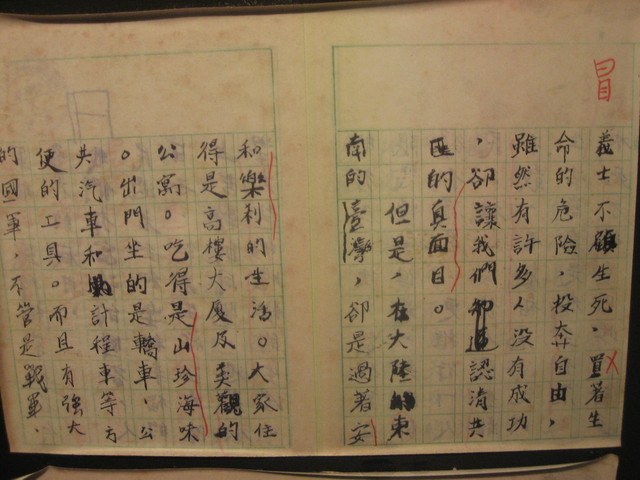 冒
義士不顧生死，買著生
命的危險，投奔自由，
雖然有許多人沒有成功
，卻讓我們認清共
匪的真面目。
但是，在大陸東
南的臺灣，卻是過著安
和樂利的生活。大家住
得是高樓大厦及美觀的
公寓。吃得是山珍海味
。出門坐的是轎車，公
共汽車和計程車等方
便的工具。而且有強大
的國軍，不管是戰軍、